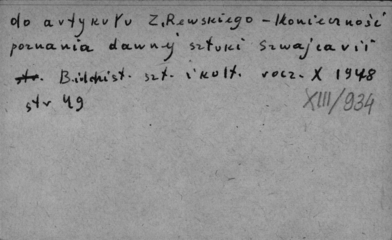 do artykułu Z. Rewskiego - Konieczność
poznania dawnej sztuki Szwajcarii
str. Bi. Hist. szt. i kult. rocz. X 1948
str 49
XIII/934